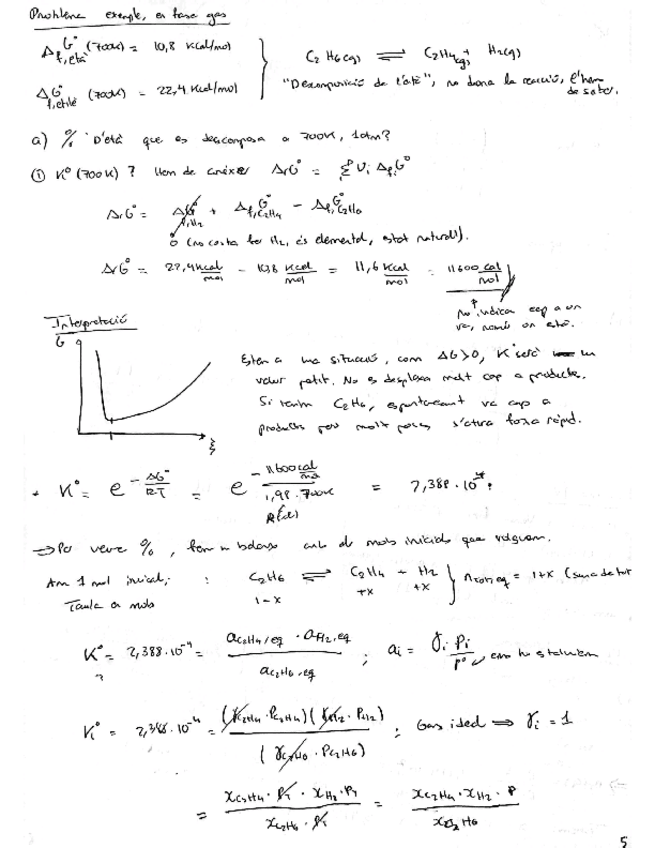 Problema exemple, en fase gas
Δf,età G° (700K) = 10,8 Kcal/mol
Δf,etilè G° (700K) = 22,4 Kcal/mol
C2H6(g) ⇌ C2H4(g) + H2(g)
"Descomposició de l'età", no dona la reacció, l'hem
de saber.
a) % D'età que es descomposa a 700K, 1atm?
① K°(700K) ? Hem de conèixer ΔrG° = Σ νi ΔfG°
ΔrG° = ΔfG°,H2 + ΔfG°,C2H4 − ΔfG°,C2H6
0 (no costa fer H2, és elemental, estat natural).
ΔrG° = 22,4 Kcal/mol − 10,8 Kcal/mol = 11,6 Kcal/mol = 11600 cal/mol
no indica cap a on
va, només on està.
Interpretació
G
ξ
Estem a una situació, com ΔG>0, K serà un
valor petit. No es desplaça molt cap a productes.
Si tenim C2H6, espontàniament va cap a
productes però molt poc, s'atura força ràpid.
K° = e^(−ΔG°/RT) = e^(−11600 cal/mol / 1,98 · 700K) = 2,388 · 10^-4
R (cal)
⇒ Per veure %, fem un balanç amb els mols inicials que volguem.
Amb 1 mol inicial, : C2H6 ⇌ C2H4 + H2 } n tot eq = 1+x (suma de tot
1−x +x +x
Taula de mols
K° = 2,388·10^-4 = aC2H4,eq · aH2,eq / aC2H6,eq ; ai = γi Pi / P°
K° = 2,388·10^-4 = (γC2H4 · PC2H4)(γH2 · PH2) / (γC2H6 · PC2H6) ; Gas ideal ⇒ γi = 1
= xC2H4 · PT · xH2 · PT / xC2H6 · PT = xC2H4 · xH2 · P / xC2H6
5